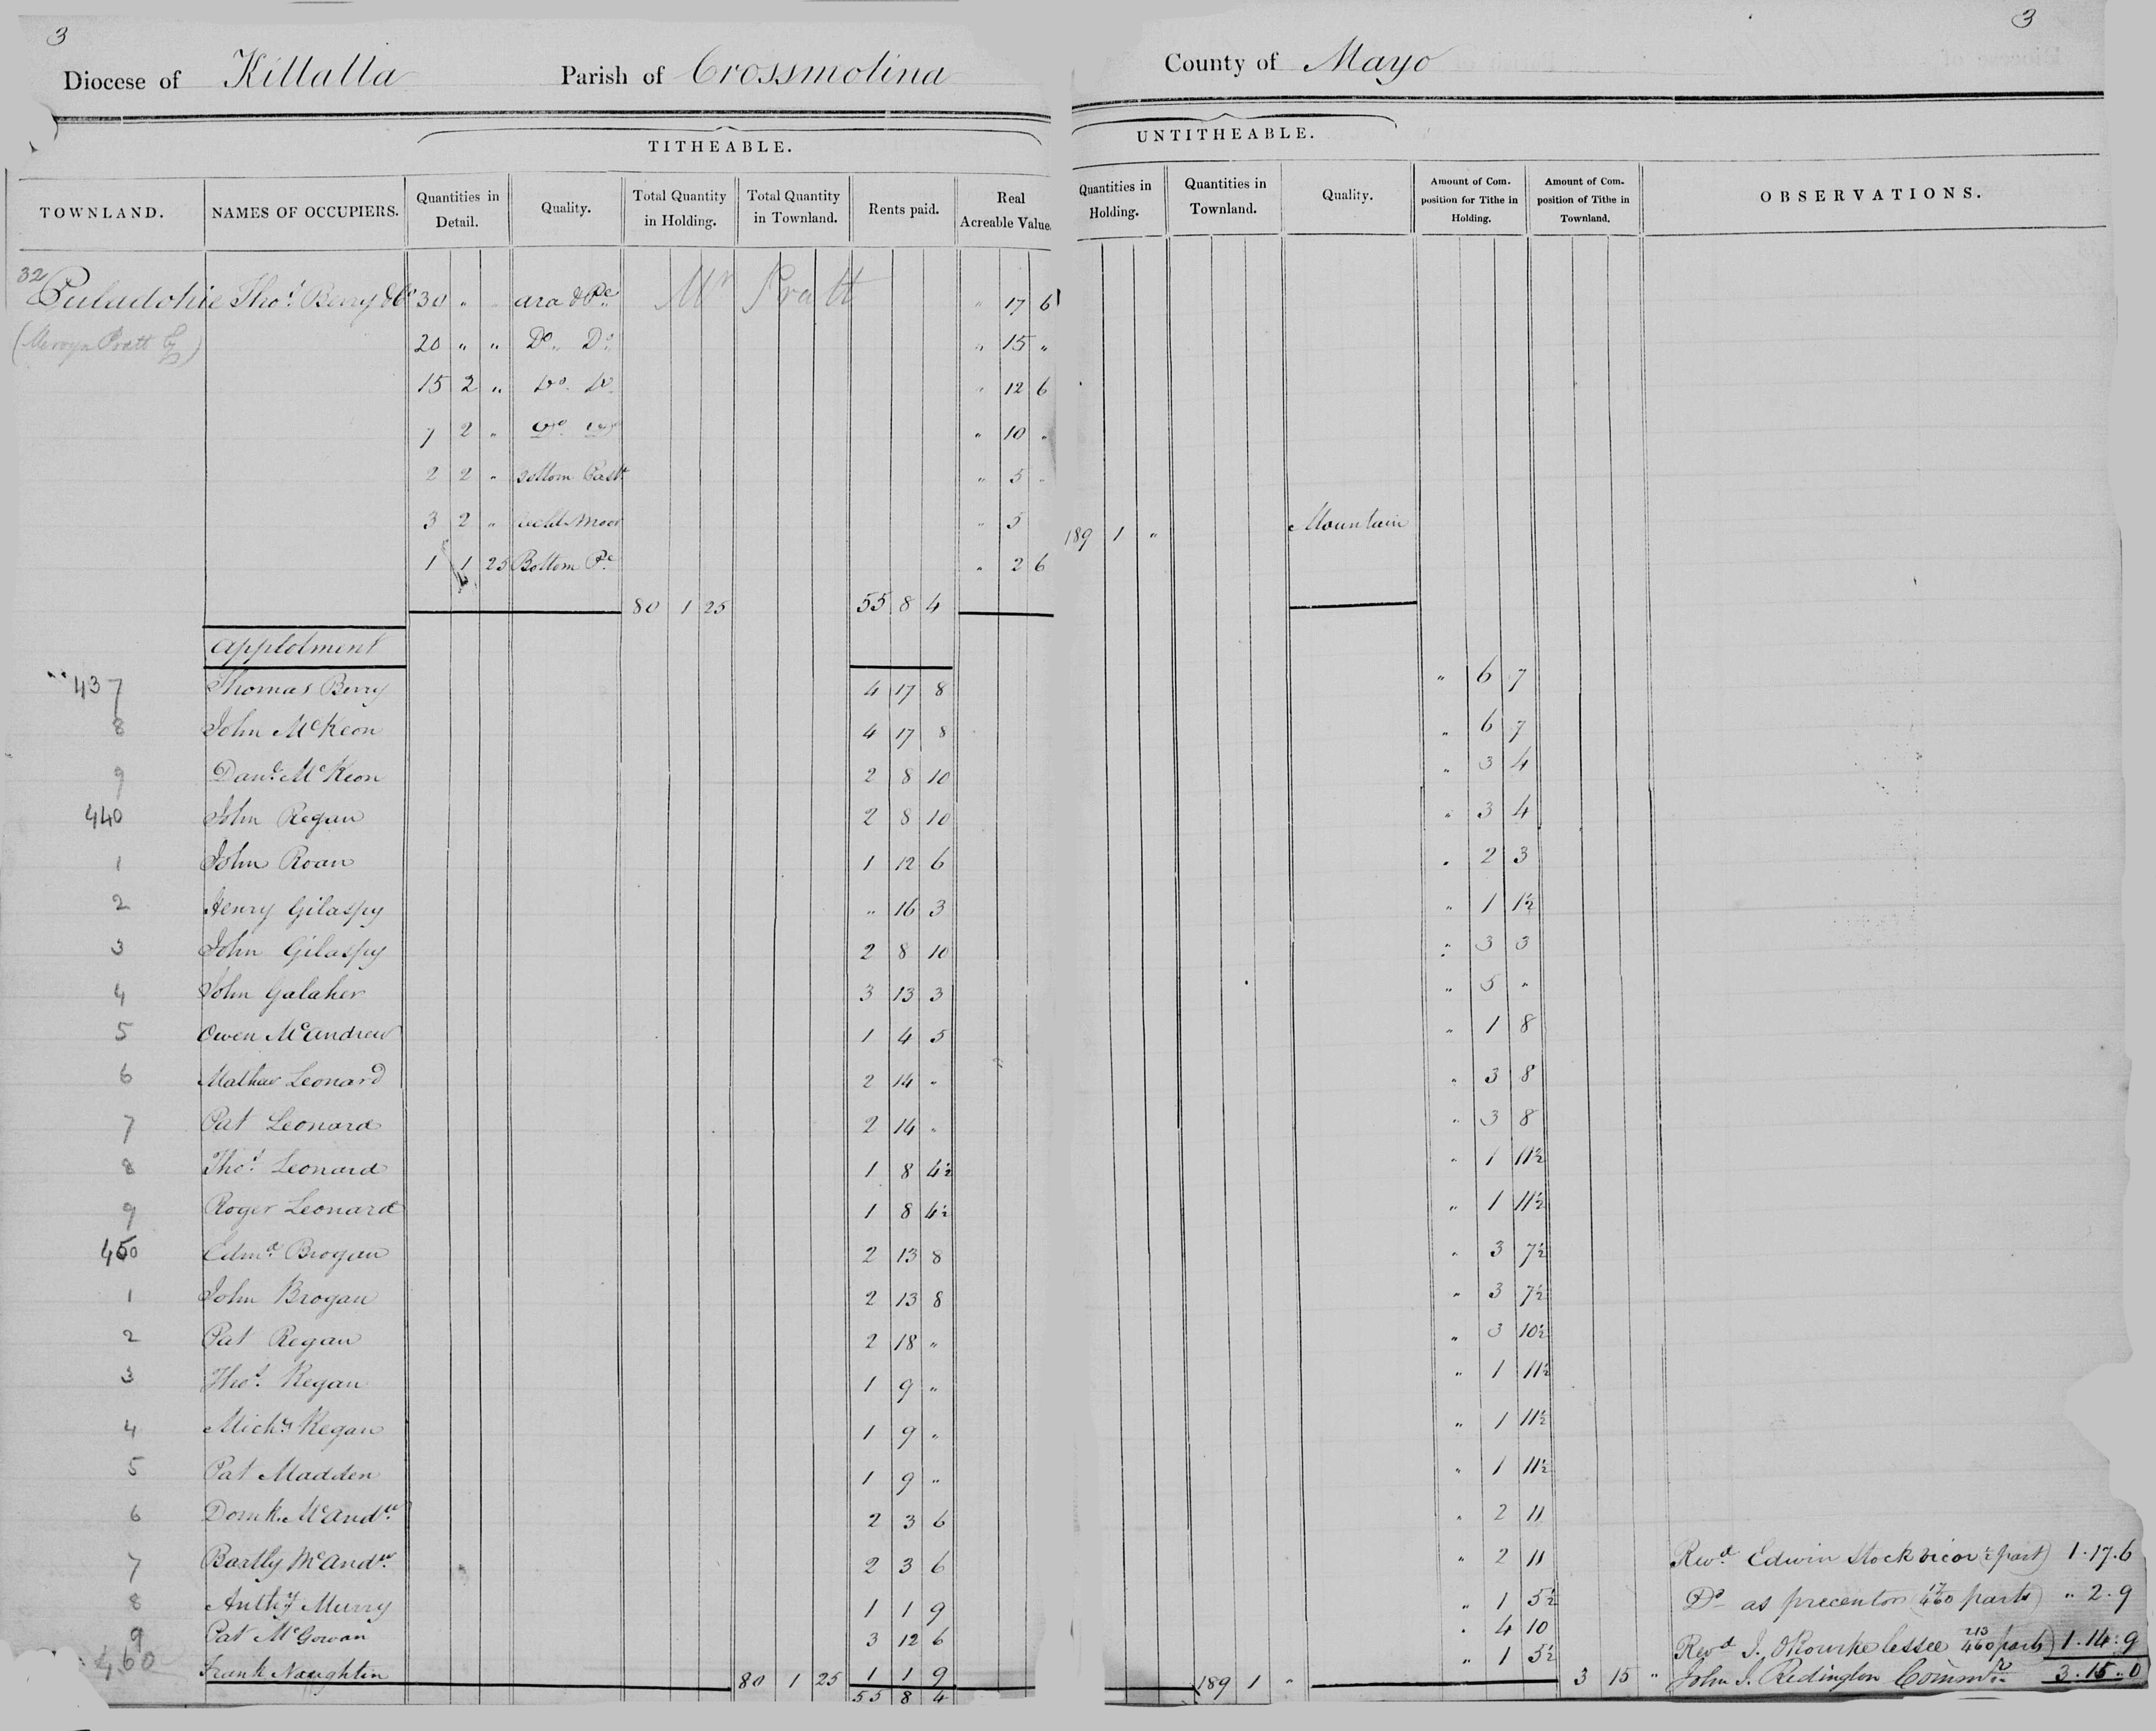 3 3
Diocese of Killalla Parish of Crossmolina County of Mayo
TITHEABLE. UNTITHEABLE.
TOWNLAND. NAMES OF OCCUPIERS. Quantities in Detail. Quality. Total Quantity in Holding. Total Quantity in Townland. Rents paid. Real Acreable Value. Quantities in Holding. Quantities in Townland. Quality. Amount of Composition for Tithe in Holding. Amount of Composition of Tithe in Townland. OBSERVATIONS.
32 Thos. Berry &Co 30 " ara & Pe. Mr Pratt " 17 6
(Mervyn Pratt Esq) 20 " " Do. Do. " 15 "
15 2 " Do. Do. " 12 6
7 2 " Do. " 10 "
2 2 " Bottom Past. " 5 "
3 2 " Moor " 5 189 1 " Mountain
1 1 25 Bottom Pe. " 2 6
80 1 25 55 8 4
Applotment
437 Thomas Berry 4 17 8 " 6 7
8 John McKeon 4 17 8 " 6 7
9 Danl. McKeon 2 8 10 " 3 4
440 John Regan 2 8 10 " 3 4
1 John Roan 1 12 6 " 2 3
2 Henry Gilaspy " 16 3 " 1 1½
3 John Gilaspy 2 8 10 " 3 3
4 John Galaher 3 13 3 " 5 "
5 Owen McAndrew 1 4 5 " 1 8
6 Mathew Leonard 2 14 " " 3 8
7 Pat Leonard 2 14 " " 3 8
8 Thos. Leonard 1 8 4½ " 1 11½
9 Roger Leonard 1 8 4½ " 1 11½
450 Edmd. Brogan 2 13 8 " 3 7½
1 John Brogan 2 13 8 " 3 7½
2 Pat Regan 2 18 " " 3 10½
3 Thos. Regan 1 9 " " 1 11½
4 Michl. Regan 1 9 " " 1 11½
5 Pat Madden 1 9 " " 1 11½
6 Domk. McAndw. 2 3 6 " 2 11
7 Bartly McAndw. 2 3 6 " 2 11 Revd. Edwin Stock vicar (½ part) 1.17.6
8 Anthy Murry 1 1 9 " 1 5½ Do as precentor (17/460 parts) " 2.9
9 Pat McGowan 3 12 6 " 4 10 Revd J. ORourke lessee 213/460 parts) 1.14.9
460 Frank Naughtin 80 1 25 1 1 9 189 1 " " 1 5½ 3 15 " John J. Redington Commr. 3.15.0
55 8 4